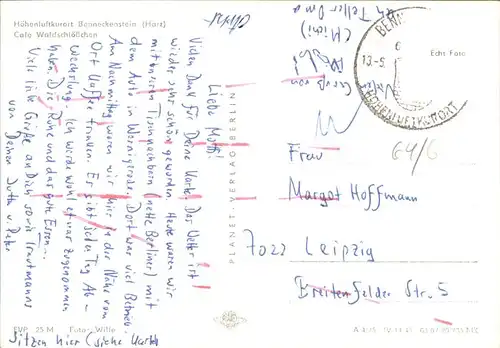 Höhenluftkurort Benneckenstein (Harz)
Café Waldschlößchen
Liebe Mutti!
Vielen Dank für Deine Karte! Das Wetter ist
wieder sehr schön geworden. Heute waren wir
mit unseren Tischnachbarn (nette Berliner) mit
dem Auto in Wernigerode. Dort war viel Betrieb.
Am Nachmittag waren wir hier in der Nähe vom
Ort Kaffee trinken. Es gibt jeden Tag Ab-
wechslung. Ich werde wohl etwas zugenommen
haben. Die Ruhe und das gute Essen...
Viele liebe Grüße an Dich sowie Trautmanns
von Deiner Ruth u. Peter
sitzen hier (siehe Karte)
PLANET-VERLAG BERLIN
Echt Foto
BENN
HÖHENLUFTKURORT
64/6
Frau
Margot Hoffmann
7022 Leipzig
Breitenfelder Str. 5
EVP 25 M